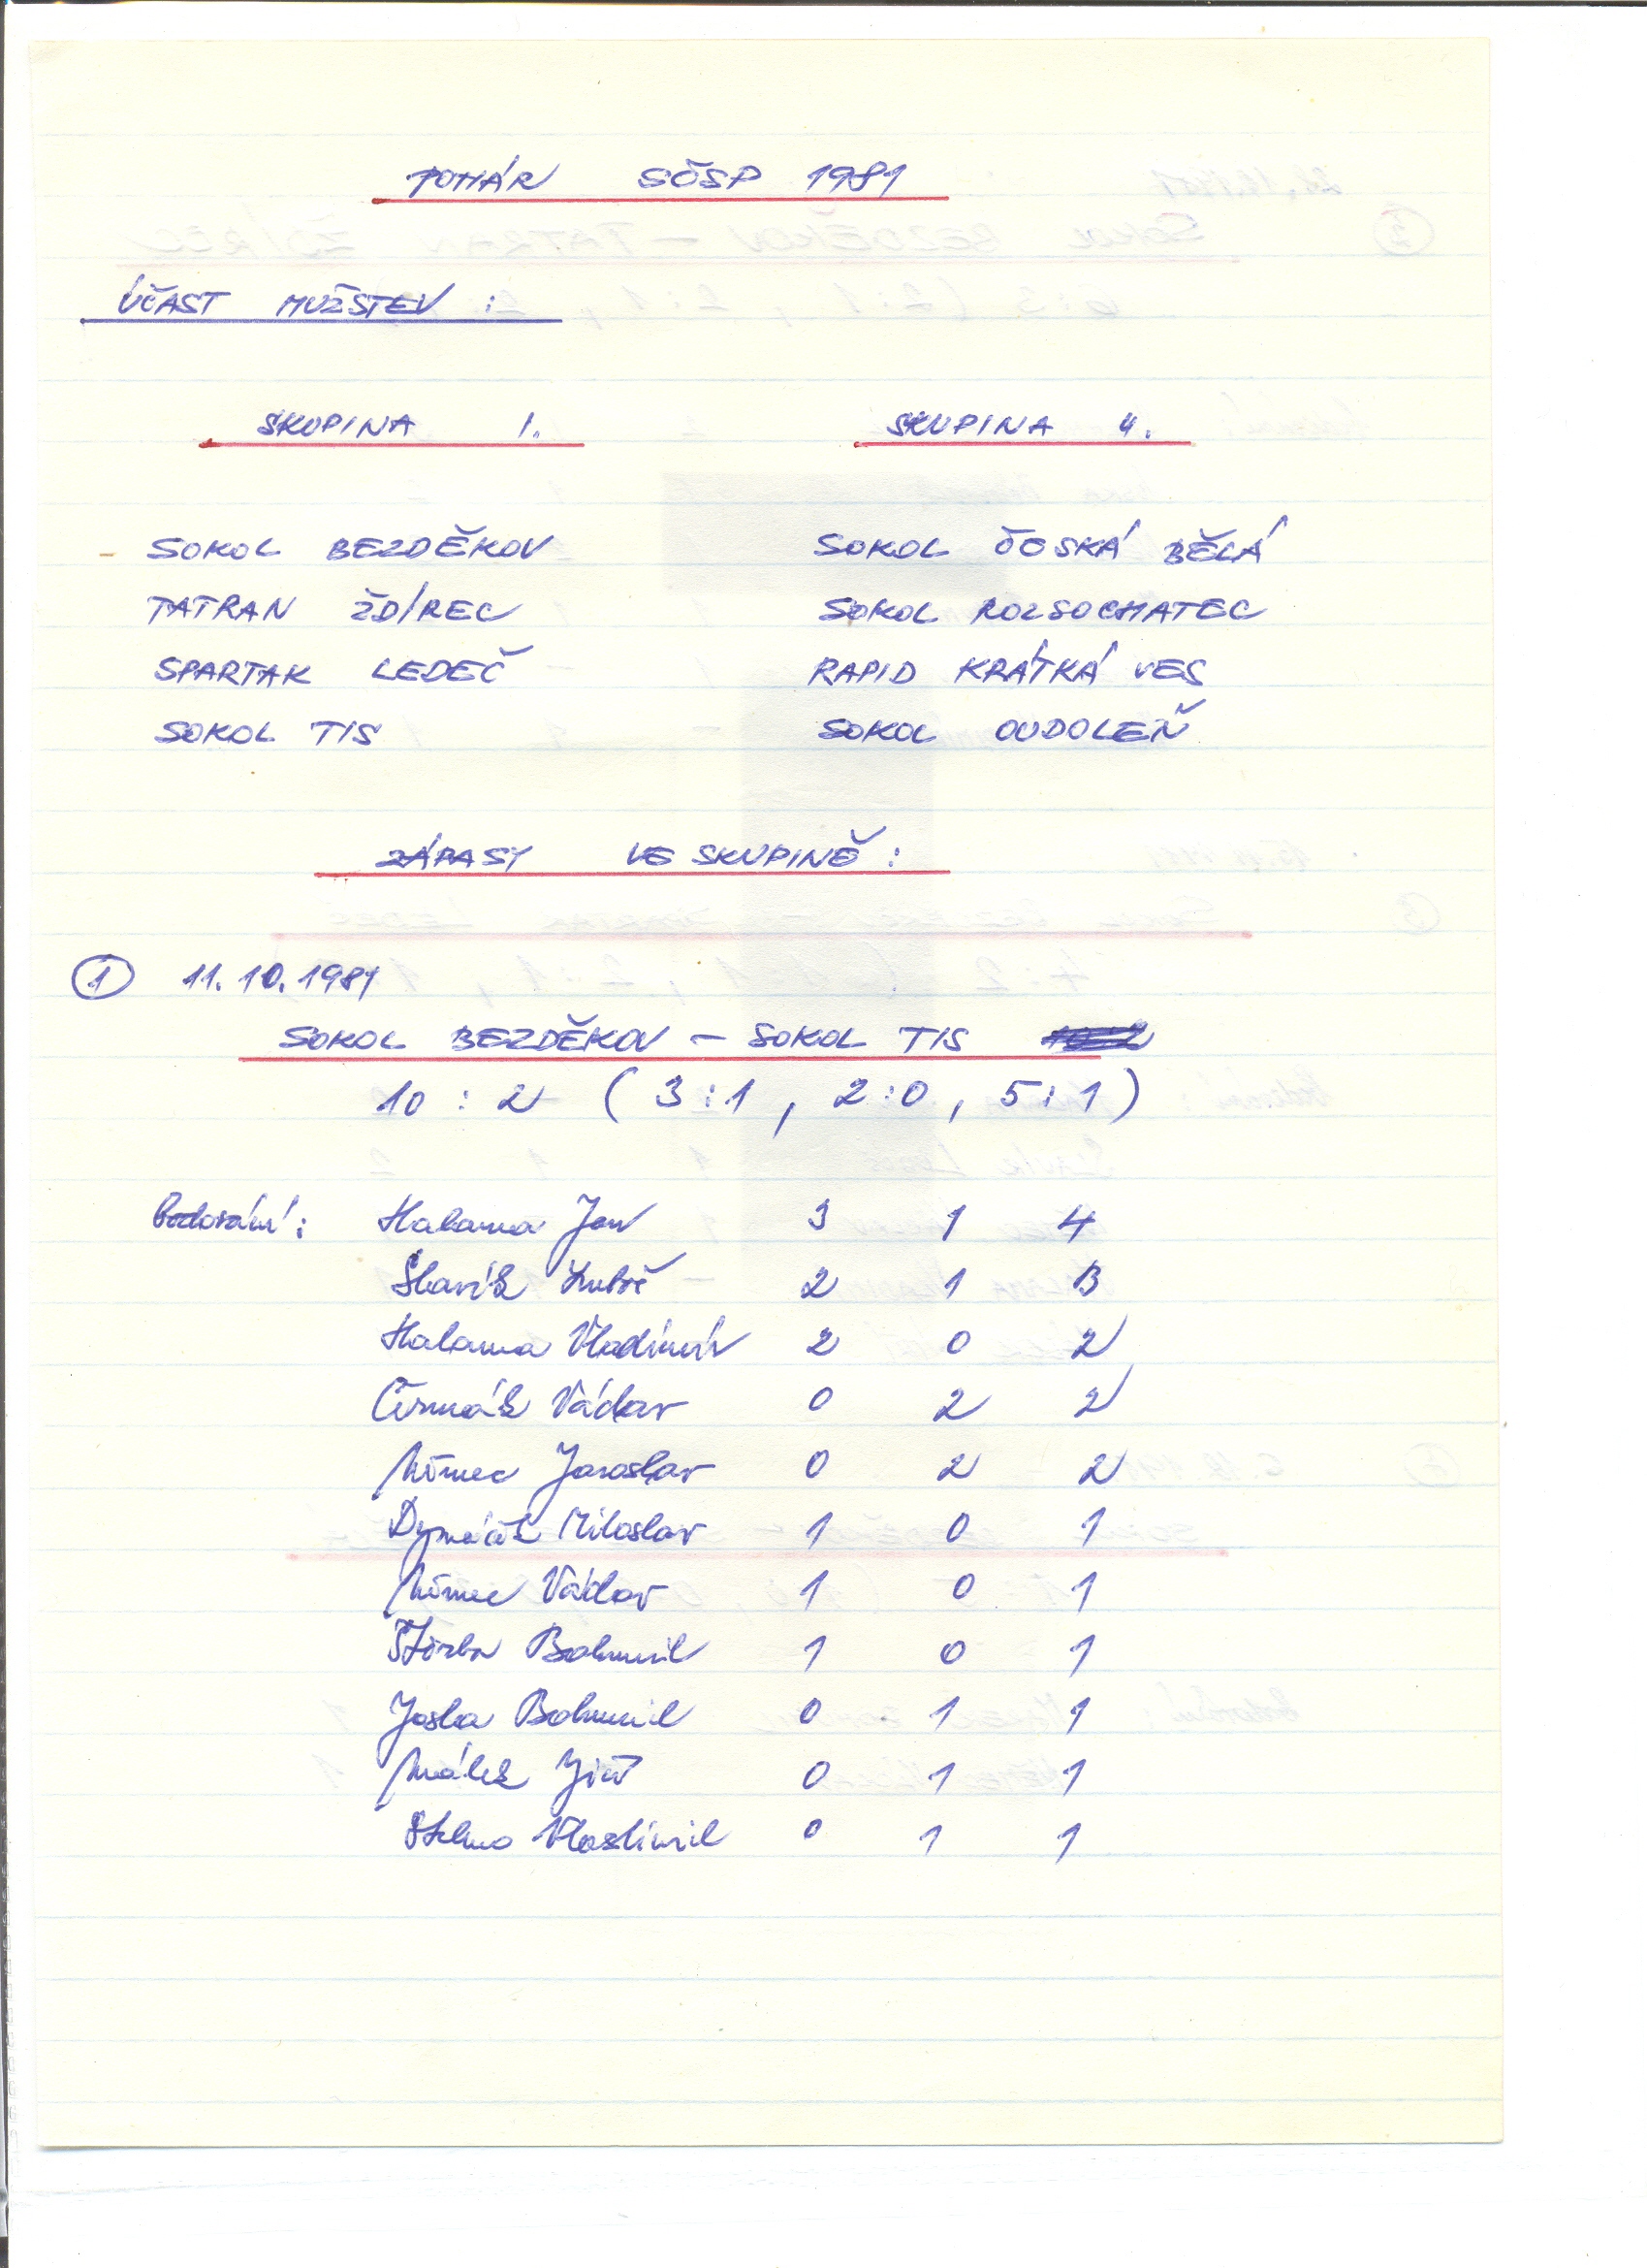 POHÁR SČSP 1981
ÚČAST MUŽSTEV :
SKUPINA 1. SKUPINA 4.
SOKOL BEZDĚKOV SOKOL ČESKÁ BĚLÁ
TATRAN ŽDÍREC SOKOL ROZSOCHATEC
SPARTAK LEDEČ RAPID KRÁTKÁ VES
SOKOL TIS SOKOL OUDOLEŇ
ZÁPASY VE SKUPINĚ :
1 11. 10. 1981
SOKOL BEZDĚKOV – SOKOL TIS
10 : 2 ( 3:1 , 2:0 , 5:1 )
Bodování : Halama Jan 3 1 4
Slavík Luboš 2 1 3
Halama Vladimír 2 0 2
Čermák Václav 0 2 2
Němec Jaroslav 0 2 2
Miloslav 1 0 1
Němec Václav 1 0 1
Štěrba Bohumil 1 0 1
Bohumil 0 1 1
Málek Jiří 0 1 1
Vlastimil 0 1 1